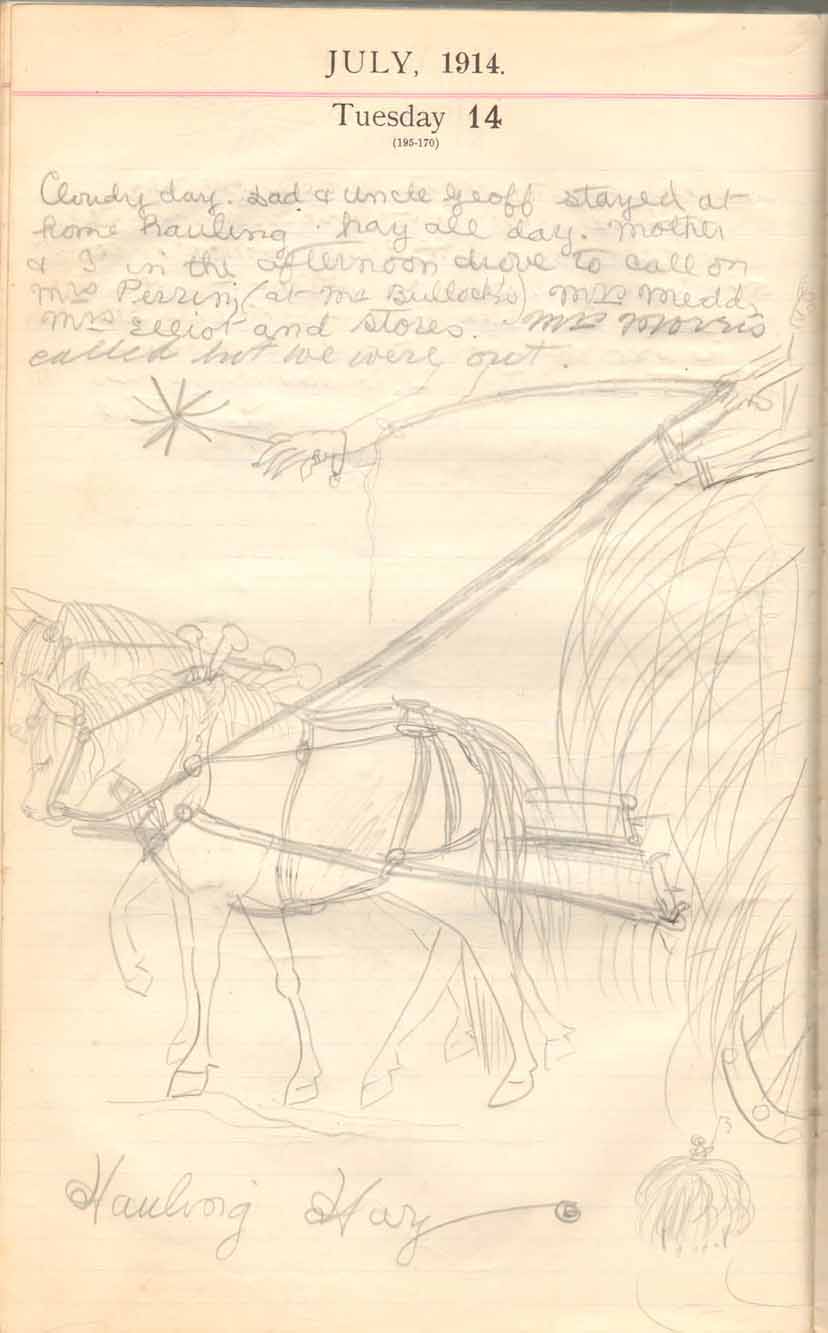 JULY, 1914.
Tuesday 14
(195-170)
Cloudy day. Dad & Uncle Geoff stayed at
home hauling hay all day. Mother
& I in the afternoon drove to call on
Mrs Perrin (at Mc Bullock's) Mrs Medd,
Mrs Elliot and stores. Mrs Morris
called but we were out.
Hauling Hay